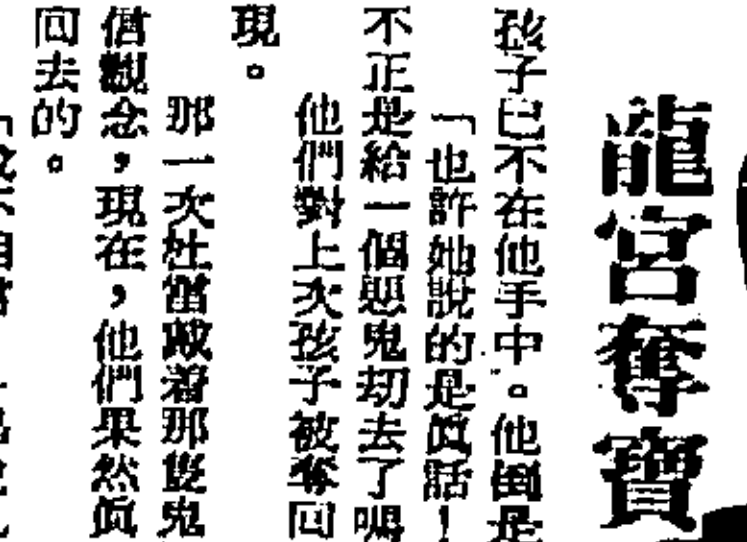 龍宮奪寶
孩子已不在他手中。他倒是
「也許她說的是眞話！
不正是給一個惡鬼刧去了嗎
他們對上次孩子被奪回
現。
那一次杜當戴着那隻鬼
信觀念，現在，他們果然眞
回去的。